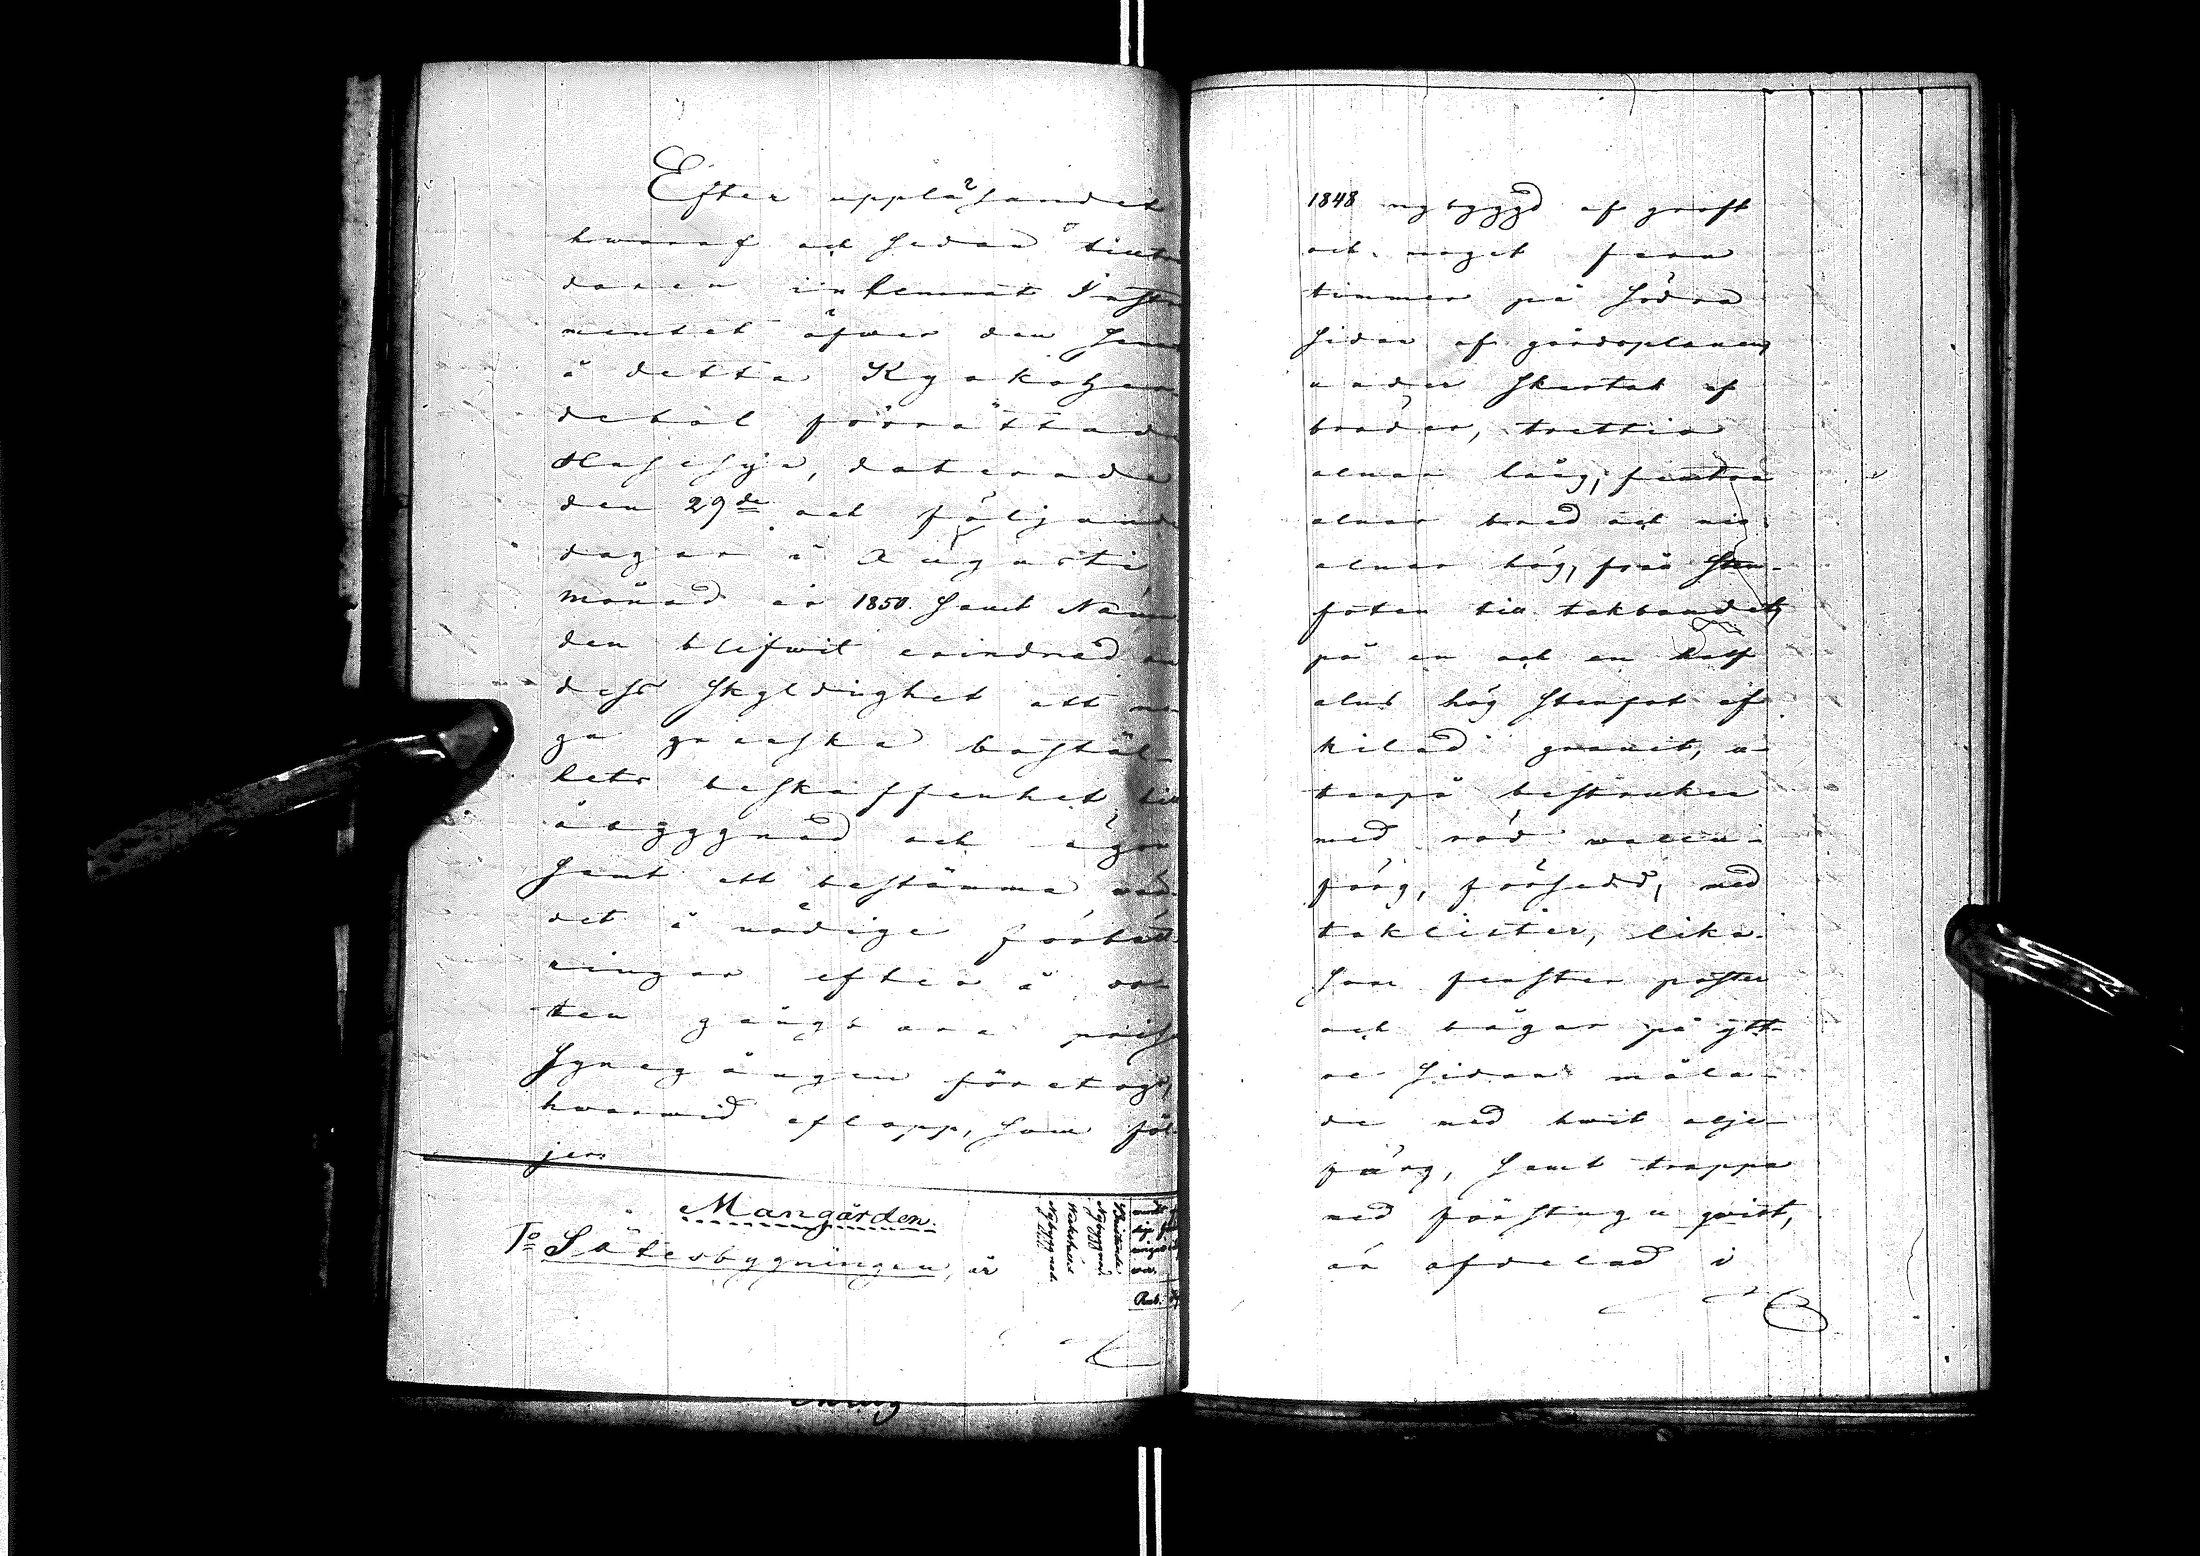 Efter uppläsandet
hwaraf och sedan
inhemtat Instru
mentet öfwer den sena
å detta Kyrkoher
deböl förrättade
Husesyn, daterade
den 29de och följande
dagar i Augusti
månad år 1850. samt Näm
den blifwit erindrad om
dess skyldighet att no
ga granska boställ-
lets beskaffenhet till
åbyggnad och ägor
samt att bestämma wär
det å nödige förbätt
ringar efter å or
ten gångbara priser
Synegången företogs,
hwarwid aflopp, som föl
jer:
Mangården.
1o Sätesbygningen, är
Bristande
Nybyggnad
Nybyggnad
1848 nybyggd af groft
och moget furu
timmer på södra
sidan af gårdsplanen,
under skertak af
bräder, trettio
alnar lång, femton
alnar bred och nio
alnar hög, från sten-
foten till takbandet,
på en och en half
alns hög stenfot af
kilad granit, u-
tanpå bestruken
med röd wallen-
färg, försedd, med
taklister, lika-
som fenster poster
och bågar på ytt-
re sidan måla-
de med hwit olje-
färg, samt trappa
med förstugu qvist,
är afdelad i